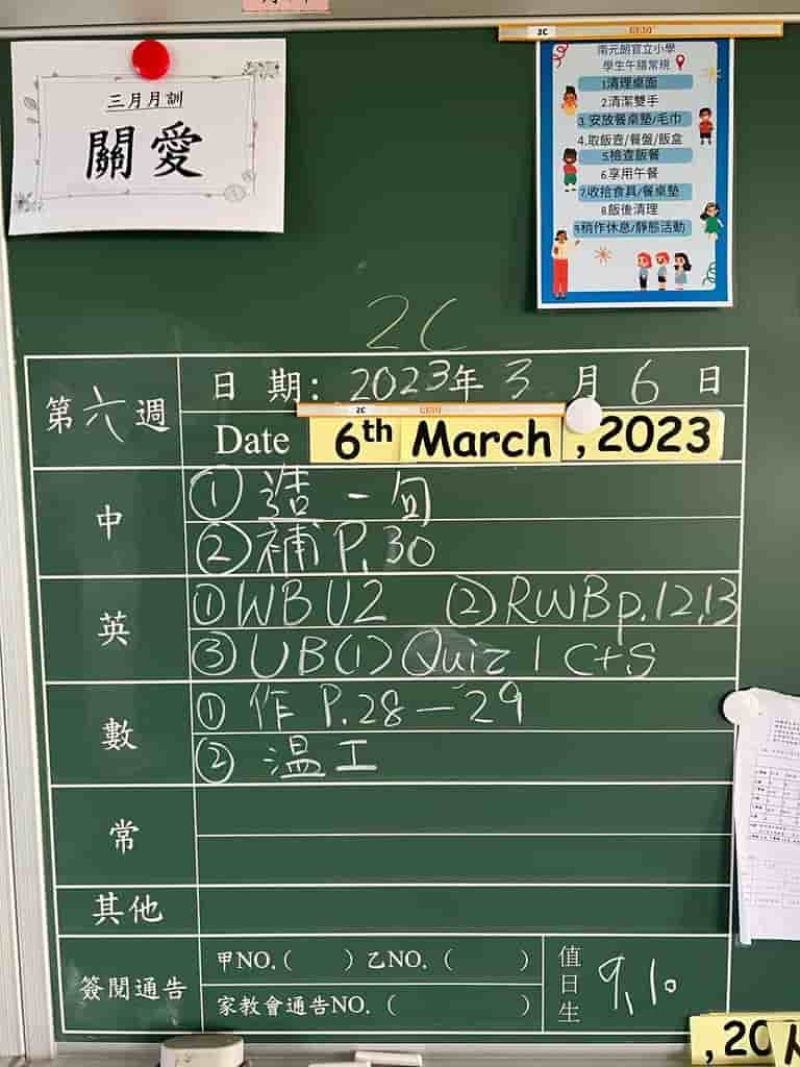 三月月訓
關愛
2C
南元朗官立小學
學生午膳常規
1.清理桌面
2.清潔雙手
3.安放餐桌墊/毛巾
4.取飯壺/餐盤/飯盒
5.檢查飯餐
6.享用午餐
7.收拾食具/餐桌墊
8.飯後清理
9.稍作休息/靜態活動
2C
第六週
日期：2023年3月6日
2C
Date 6th March, 2023
中
① 造一句
② 補 P.30
英
① WB U2 ② RWB p.12,13
③ UB(1) Quiz 1 C+S
數
① 作 P.28—29
② 溫工
常
其他
簽閱通告
甲NO.( ) 乙NO.( )
家教會通告NO.( )
值日生
9,10
,20